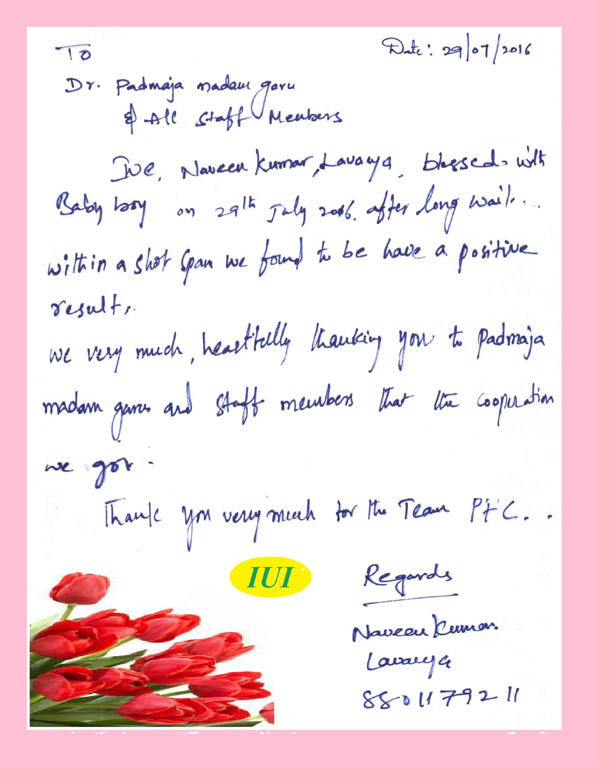 To
Date: 29/07/2016
Dr. Padmaja madam garu
& All Staff Members
We, Naveen Kumar, Lavanya, blessed with
Baby boy on 29th July 2016. after long wait...
within a shot span we found to be have a positive
result,.
we very much, heartfully thanking you to Padmaja
madam garu and staff members that the cooperation
we got.
Thank you very much for the Team PFC..
IUI
Regards
Naveen Kumar.
Lavanya
8801179211